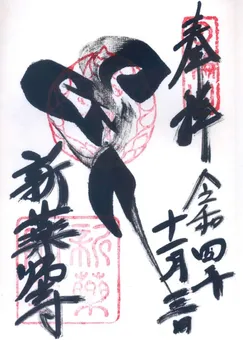 奉拝
令和四年
十一月三日
新薬師寺